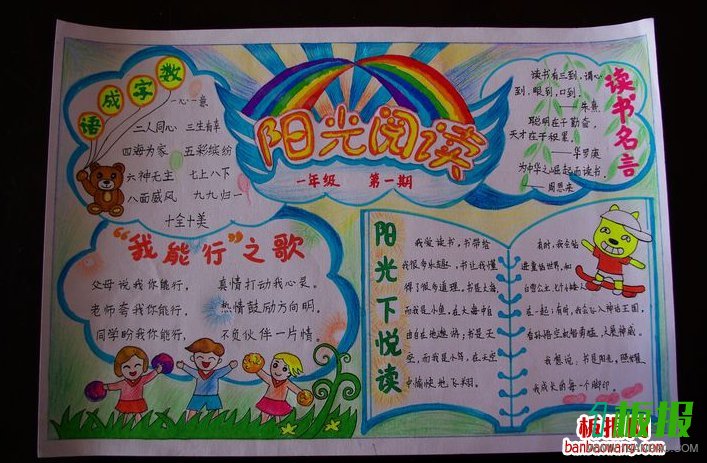 数字成语
一心一意
二人同心 三生有幸
四海为家 五彩缤纷
六神无主 七上八下
八面威风 九九归一
十全十美
阳光阅读
一年级 第一期
读书名言
读书有三到，谓心
到，眼到，口到。
——朱熹
聪明在于勤奋，
天才在于积累。
——华罗庚
为中华之崛起而读书。
——周恩来
“我能行”之歌
父母说我你能行， 真情打动我心灵。
老师夸我你能行， 热情鼓励方向明。
同学盼我你能行， 不负伙伴一片情。
阳光下悦读
我爱读书，书带给
我很多乐趣，书让我懂
得了很多道理，书是大海，
而我是小鱼，在大海中自
由自在地遨游；书是天
空，而我是小鸟，在天空
中愉快地飞翔。
有时，我会钻
进童话世界，和
白雪公主、七个小矮人
在一起；有时，我会闯入神话王国，
看孙悟空机智勇猛，大展神威。
我想说：书是阳光，照耀
我成长的每一个脚印。
板报网
banbaowang.com
板报